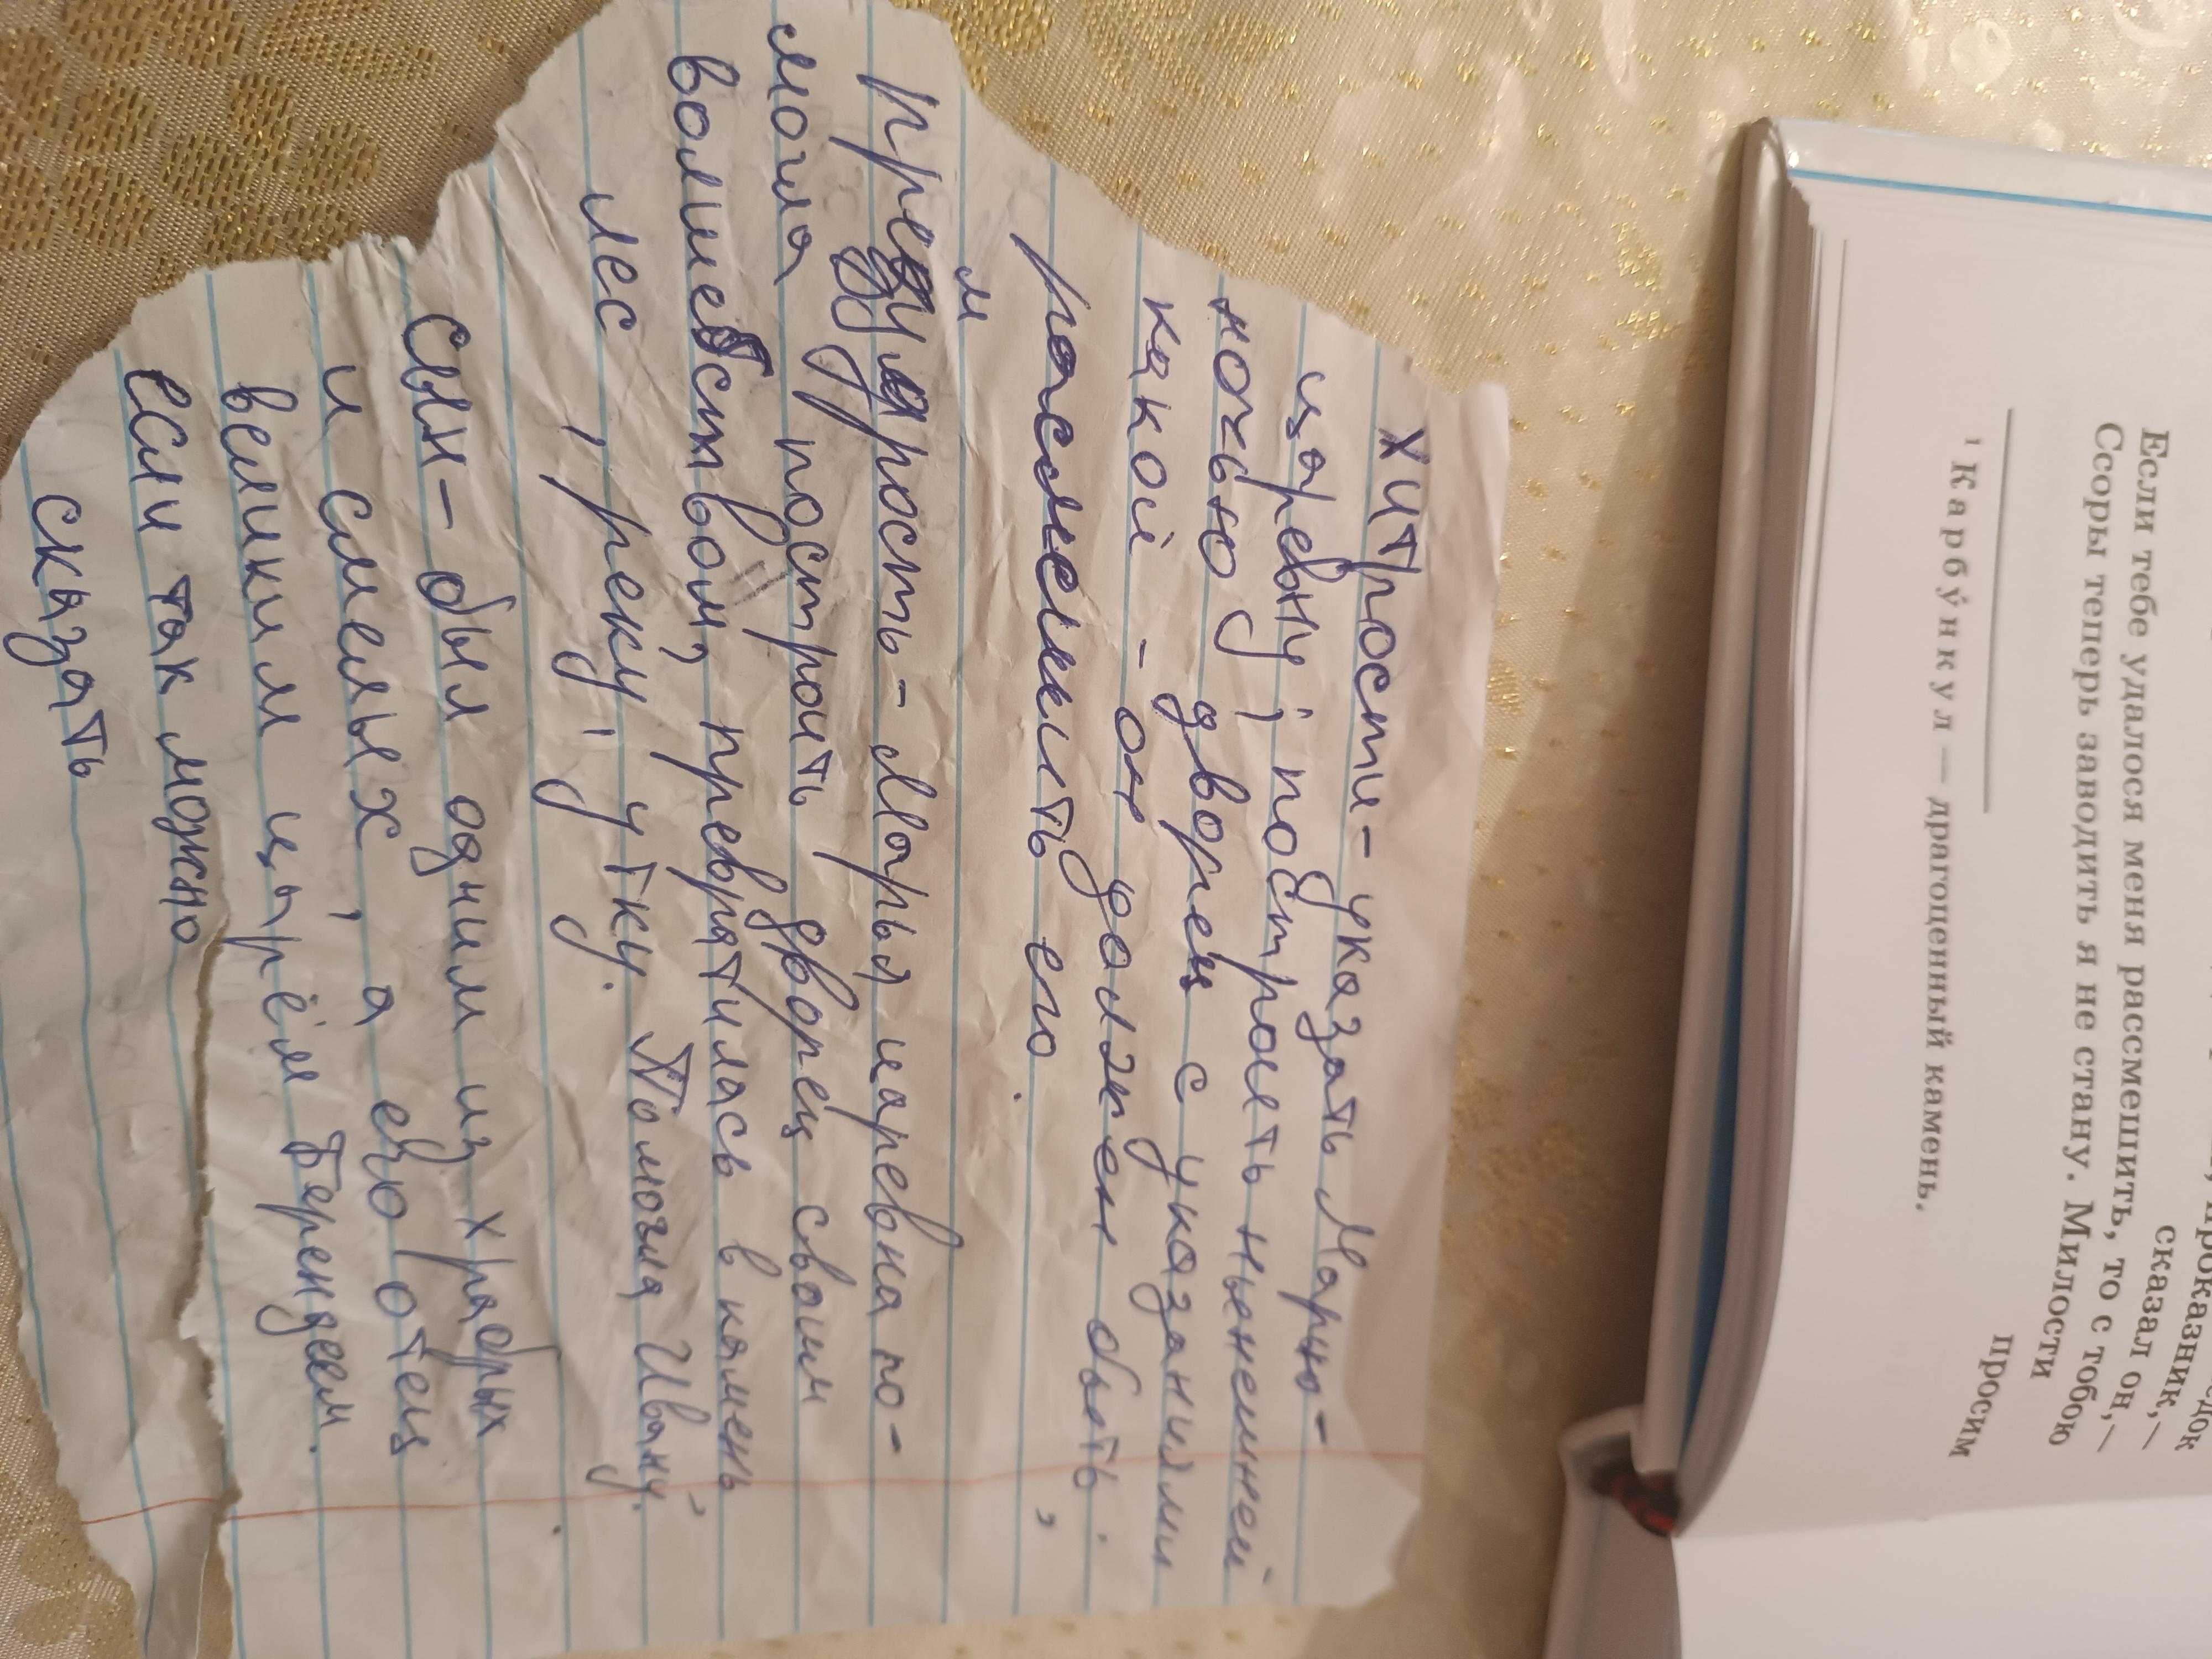 проказник,—
сказал он,—
Если тебе удалося меня рассмешить, то с тобою
Ссоры теперь заводить я не стану. Милости
просим
¹ Карбу́нкул — драгоценный камень.
хитрости - указать Марью-
царевну; построить нынешней
ночью дворец с указаниями
какой - он должен быть;
рассмешить его.
м
мудрость - Марья царевна по-
могла построить дворец своим
волшебством, превратилась в камень,
лес, реку, утку. Помогла Ивану.
Сын - был одним из храбрых
и смелых, а его отец
великим царём Берендеем.
если так можно
сказать